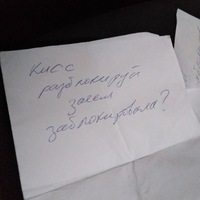 Кисс
разблокируй
зачем
заблокировала?